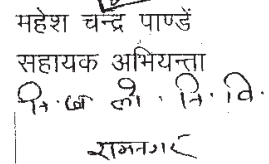 महेश चन्द्र पाण्डें
सहायक अभियन्ता
नि. ख लो. नि. वि.
रामनगर